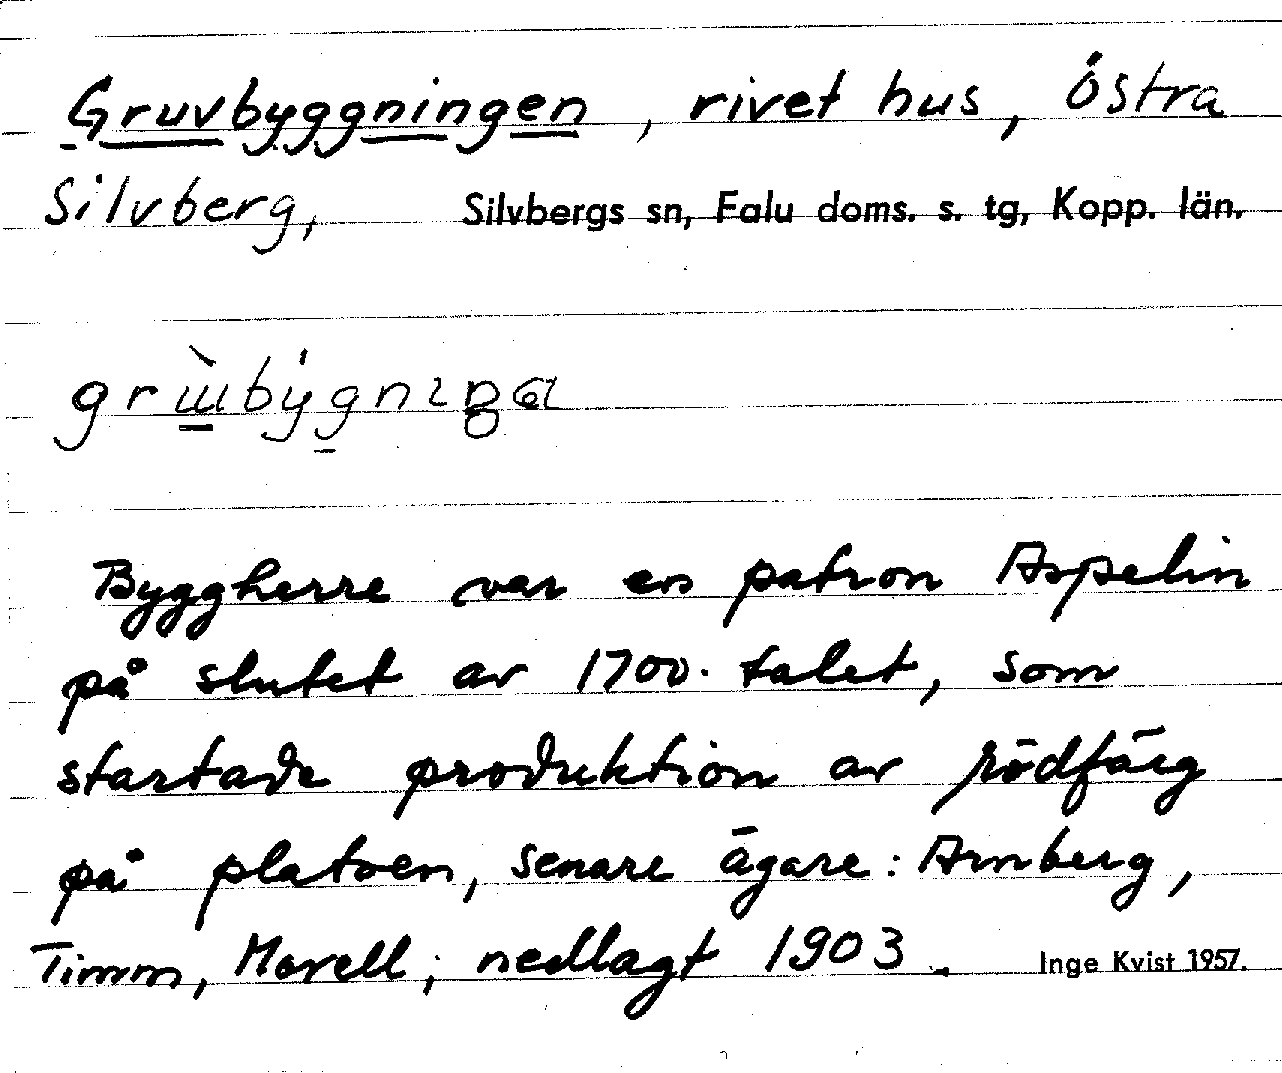 Gruvbyggningen, rivet hus, Östra
Silvberg, Silvbergs sn, Falu doms. s. tg, Kopp. län.
Byggherre var en patron Aspelin
på slutet av 1700-talet, som
startade produktion av rödfärg
på platsen, senare ägare: Arnberg,
Timm, Morell; nedlagt 1903.
Inge Kvist 1957.